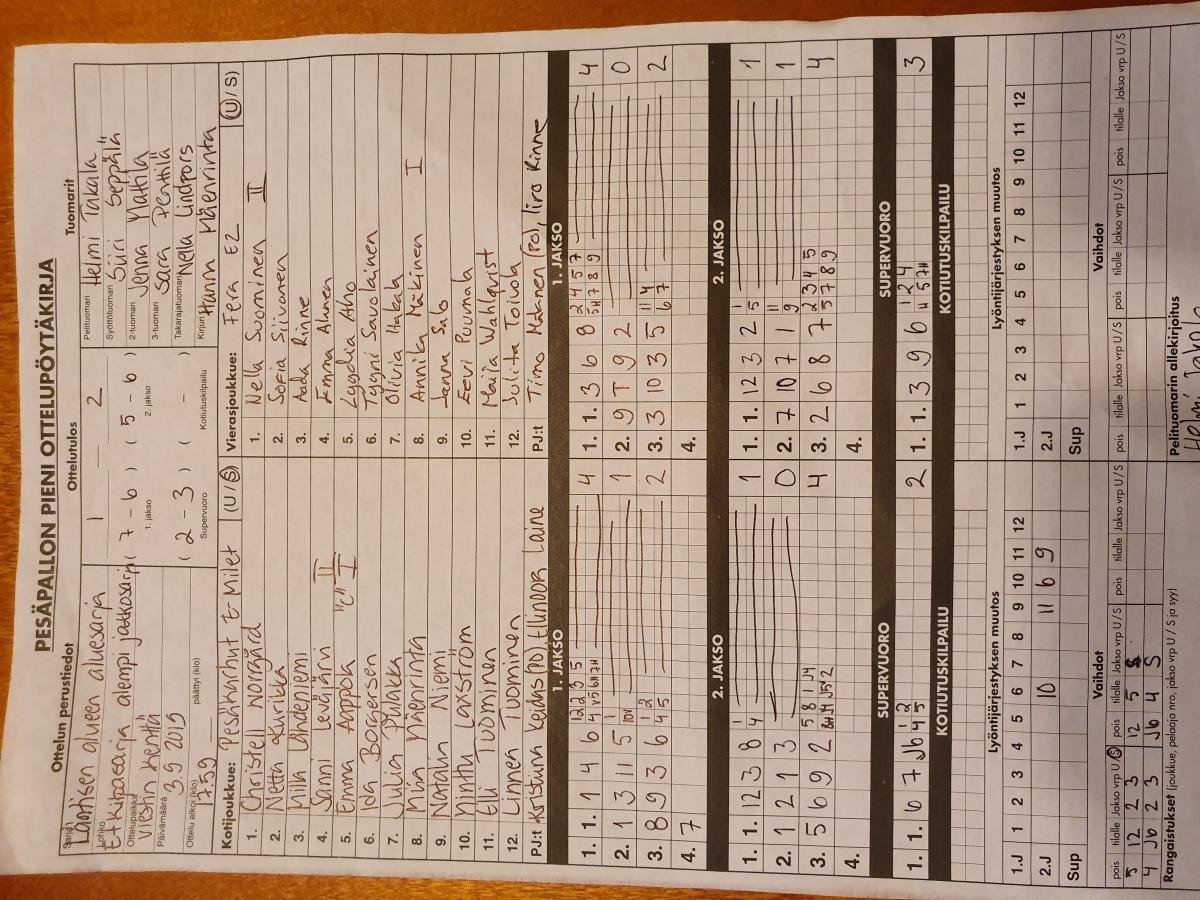 PESÄPALLON PIENI OTTELUPÖYTÄKIRJA
Ottelun perustiedot
Ottelutulos
Tuomarit
Sarja
Läntisen alueen aluesarja
Lohko
E tkilpasarja alempi jatkosarja
Ottelupaikka
Viestin kenttä
Päivämäärä
3.9 2019
Ottelu alkoi (klo)
17.59
päättyi (klo)
1 – 2
( 7 – 6 ) ( 5 – 6 )
1. jakso
2. jakso
( 2 – 3 ) ( – )
Supervuoro
Kotiutuskilpailu
Pelituomari Helmi Takala
Syöttötuomari Siiri Seppälä
2-tuomari Jenna Mattila
3-tuomari Sara Penttilä
Takarajatuomari Nella Lindfors
Kirjuri Hanna Mäenrinta
Kotijoukkue: Pesäkarhut E Milet (U/S)
1. Christell Norrgård
2. Netta Kurikka
3. Milla Lähdeniemi
4. Sanni Leväjärvi II
5. Emma Arppola "c" I
6. Ida Borgersen
7. Julia Palakka
8. Miia Mäenrinta
9. Natalia Niemi
10. Minttu Laxström
11. Elli Tuominen
12. Linnea Tuominen
PJ:t Kristiina Keidas (PJ), Ellinoor Laine
Vierasjoukkue: Fera E2 (U/S)
1. Nella Suominen II
2. Sofia Siivonen
3. Aada Rinne
4. Emma Ahonen
5. Lyydia Aho
6. Tyyni Savolainen
7. Olivia Itakala
8. Annika Mäkinen I
9. Jenna Salo
10. Eevi Puumala
11. Maija Wahlqvist
12. Julita Toivola
PJ:t Timo Mäkinen (PJ), Iiro Rinne
1. JAKSO
1. 1. 1 4 6 4
2. 1 3 11 5 1
3. 8 9 3 6 2
4. 7
1. JAKSO
1. 1. 3 6 8 4
2. 9 T 9 2 0
3. 3 10 3 5 2
4.
2. JAKSO
1. 1. 12 3 8 1
2. 1 2 1 3 0
3. 5 6 9 2 4
4.
2. JAKSO
1. 1. 12 3 2 1
2. 7 10 7 1 1
3. 2 6 8 7 4
4.
SUPERVUORO
1. 1. 10 7 Jb 2
SUPERVUORO
1. 1. 3 9 6 3
KOTIUTUSKILPAILU
KOTIUTUSKILPAILU
Lyöntijärjestyksen muutos
1.J 1 2 3 4 5 6 7 8 9 10 11 12
2.J 10 11 6 9
Sup
Lyöntijärjestyksen muutos
1.J 1 2 3 4 5 6 7 8 9 10 11 12
2.J
Sup
Vaihdot
pois tilalle Jakso vrp U/S pois tilalle Jakso vrp U/S pois tilalle Jakso vrp U/S
5 12 2 3 12 5 S
4 Jb 2 3 Jb 4 S
Vaihdot
pois tilalle Jakso vrp U/S pois tilalle Jakso vrp U/S pois tilalle Jakso vrp U/S
Rangaistukset (joukkue, pelaaja nro, jakso vrp U / S ja syy)
Pelituomarin allekirjoitus
Helmi Takala